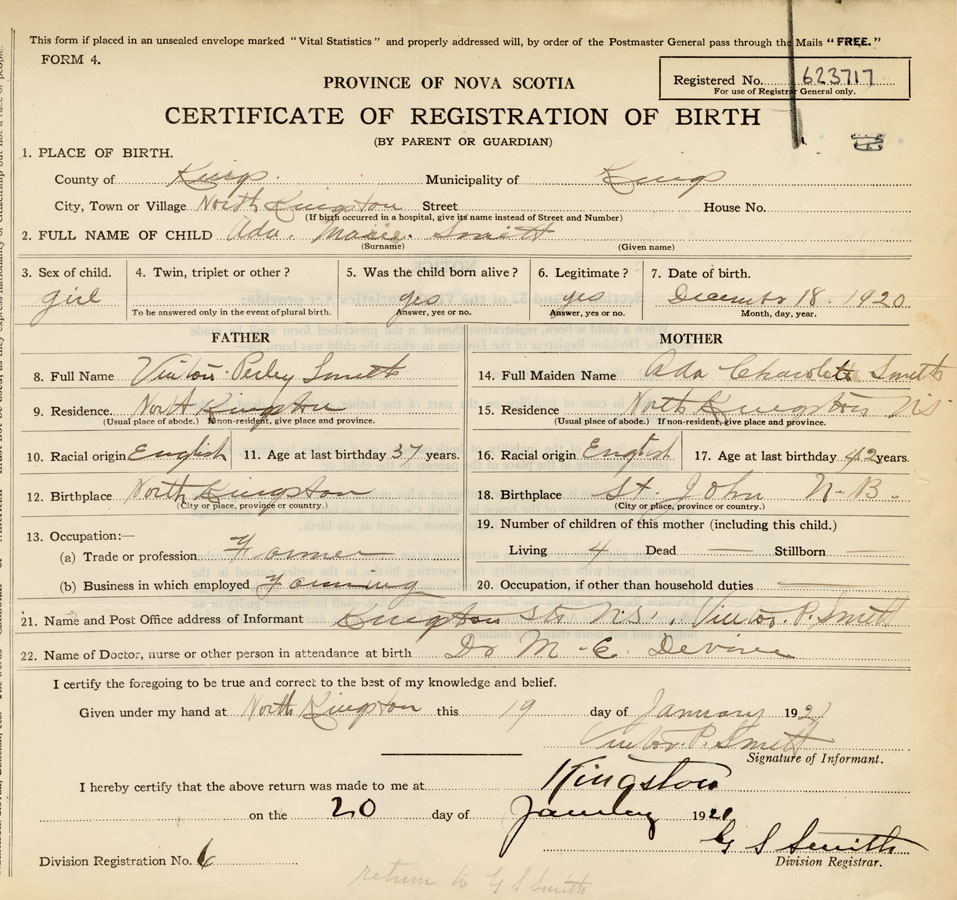 This form if placed in an unsealed envelope marked "Vital Statistics" and properly addressed will, by order of the Postmaster General pass through the Mails "FREE."
FORM 4.
Registered No. 623717
For use of Registrar General only.
PROVINCE OF NOVA SCOTIA
CERTIFICATE OF REGISTRATION OF BIRTH
(BY PARENT OR GUARDIAN)
1. PLACE OF BIRTH.
County of Kings. Municipality of Kings
City, Town or Village North Kingston Street House No.
(If birth occurred in a hospital, give its name instead of Street and Number)
2. FULL NAME OF CHILD Ada. Marie. Smith
(Surname) (Given name)
3. Sex of child. 4. Twin, triplet or other? 5. Was the child born alive? 6. Legitimate? 7. Date of birth.
girl yes yes December 18. 1920
To be answered only in the event of plural birth. Answer, yes or no. Answer, yes or no. Month, day, year.
FATHER MOTHER
8. Full Name Perley Smith 14. Full Maiden Name Ada Charlotte Smith
9. Residence. North Kingston 15. Residence North Kingston N.S.
(Usual place of abode.) If non-resident, give place and province. (Usual place of abode.) If non-resident, give place and province.
10. Racial origin English 11. Age at last birthday 37 years. 16. Racial origin English 17. Age at last birthday 42 years.
12. Birthplace North Kingston 18. Birthplace St. John N-B.
(City or place, province or country.) (City or place, province or country.)
19. Number of children of this mother (including this child.)
13. Occupation:—
(a) Trade or profession Farmer Living 4 Dead — Stillborn —
(b) Business in which employed Farming 20. Occupation, if other than household duties —
21. Name and Post Office address of Informant Kingston Sta N.S., P. Smith
22. Name of Doctor, nurse or other person in attendance at birth Dr M. C. Devine
I certify the foregoing to be true and correct to the best of my knowledge and belief.
Given under my hand at North Kingston this 19 day of January 1921
P. Smith
Signature of Informant.
I hereby certify that the above return was made to me at Kingston
on the 20 day of January 1921
G S Smith
Division Registrar.
Division Registration No. 6
return to G S Smith